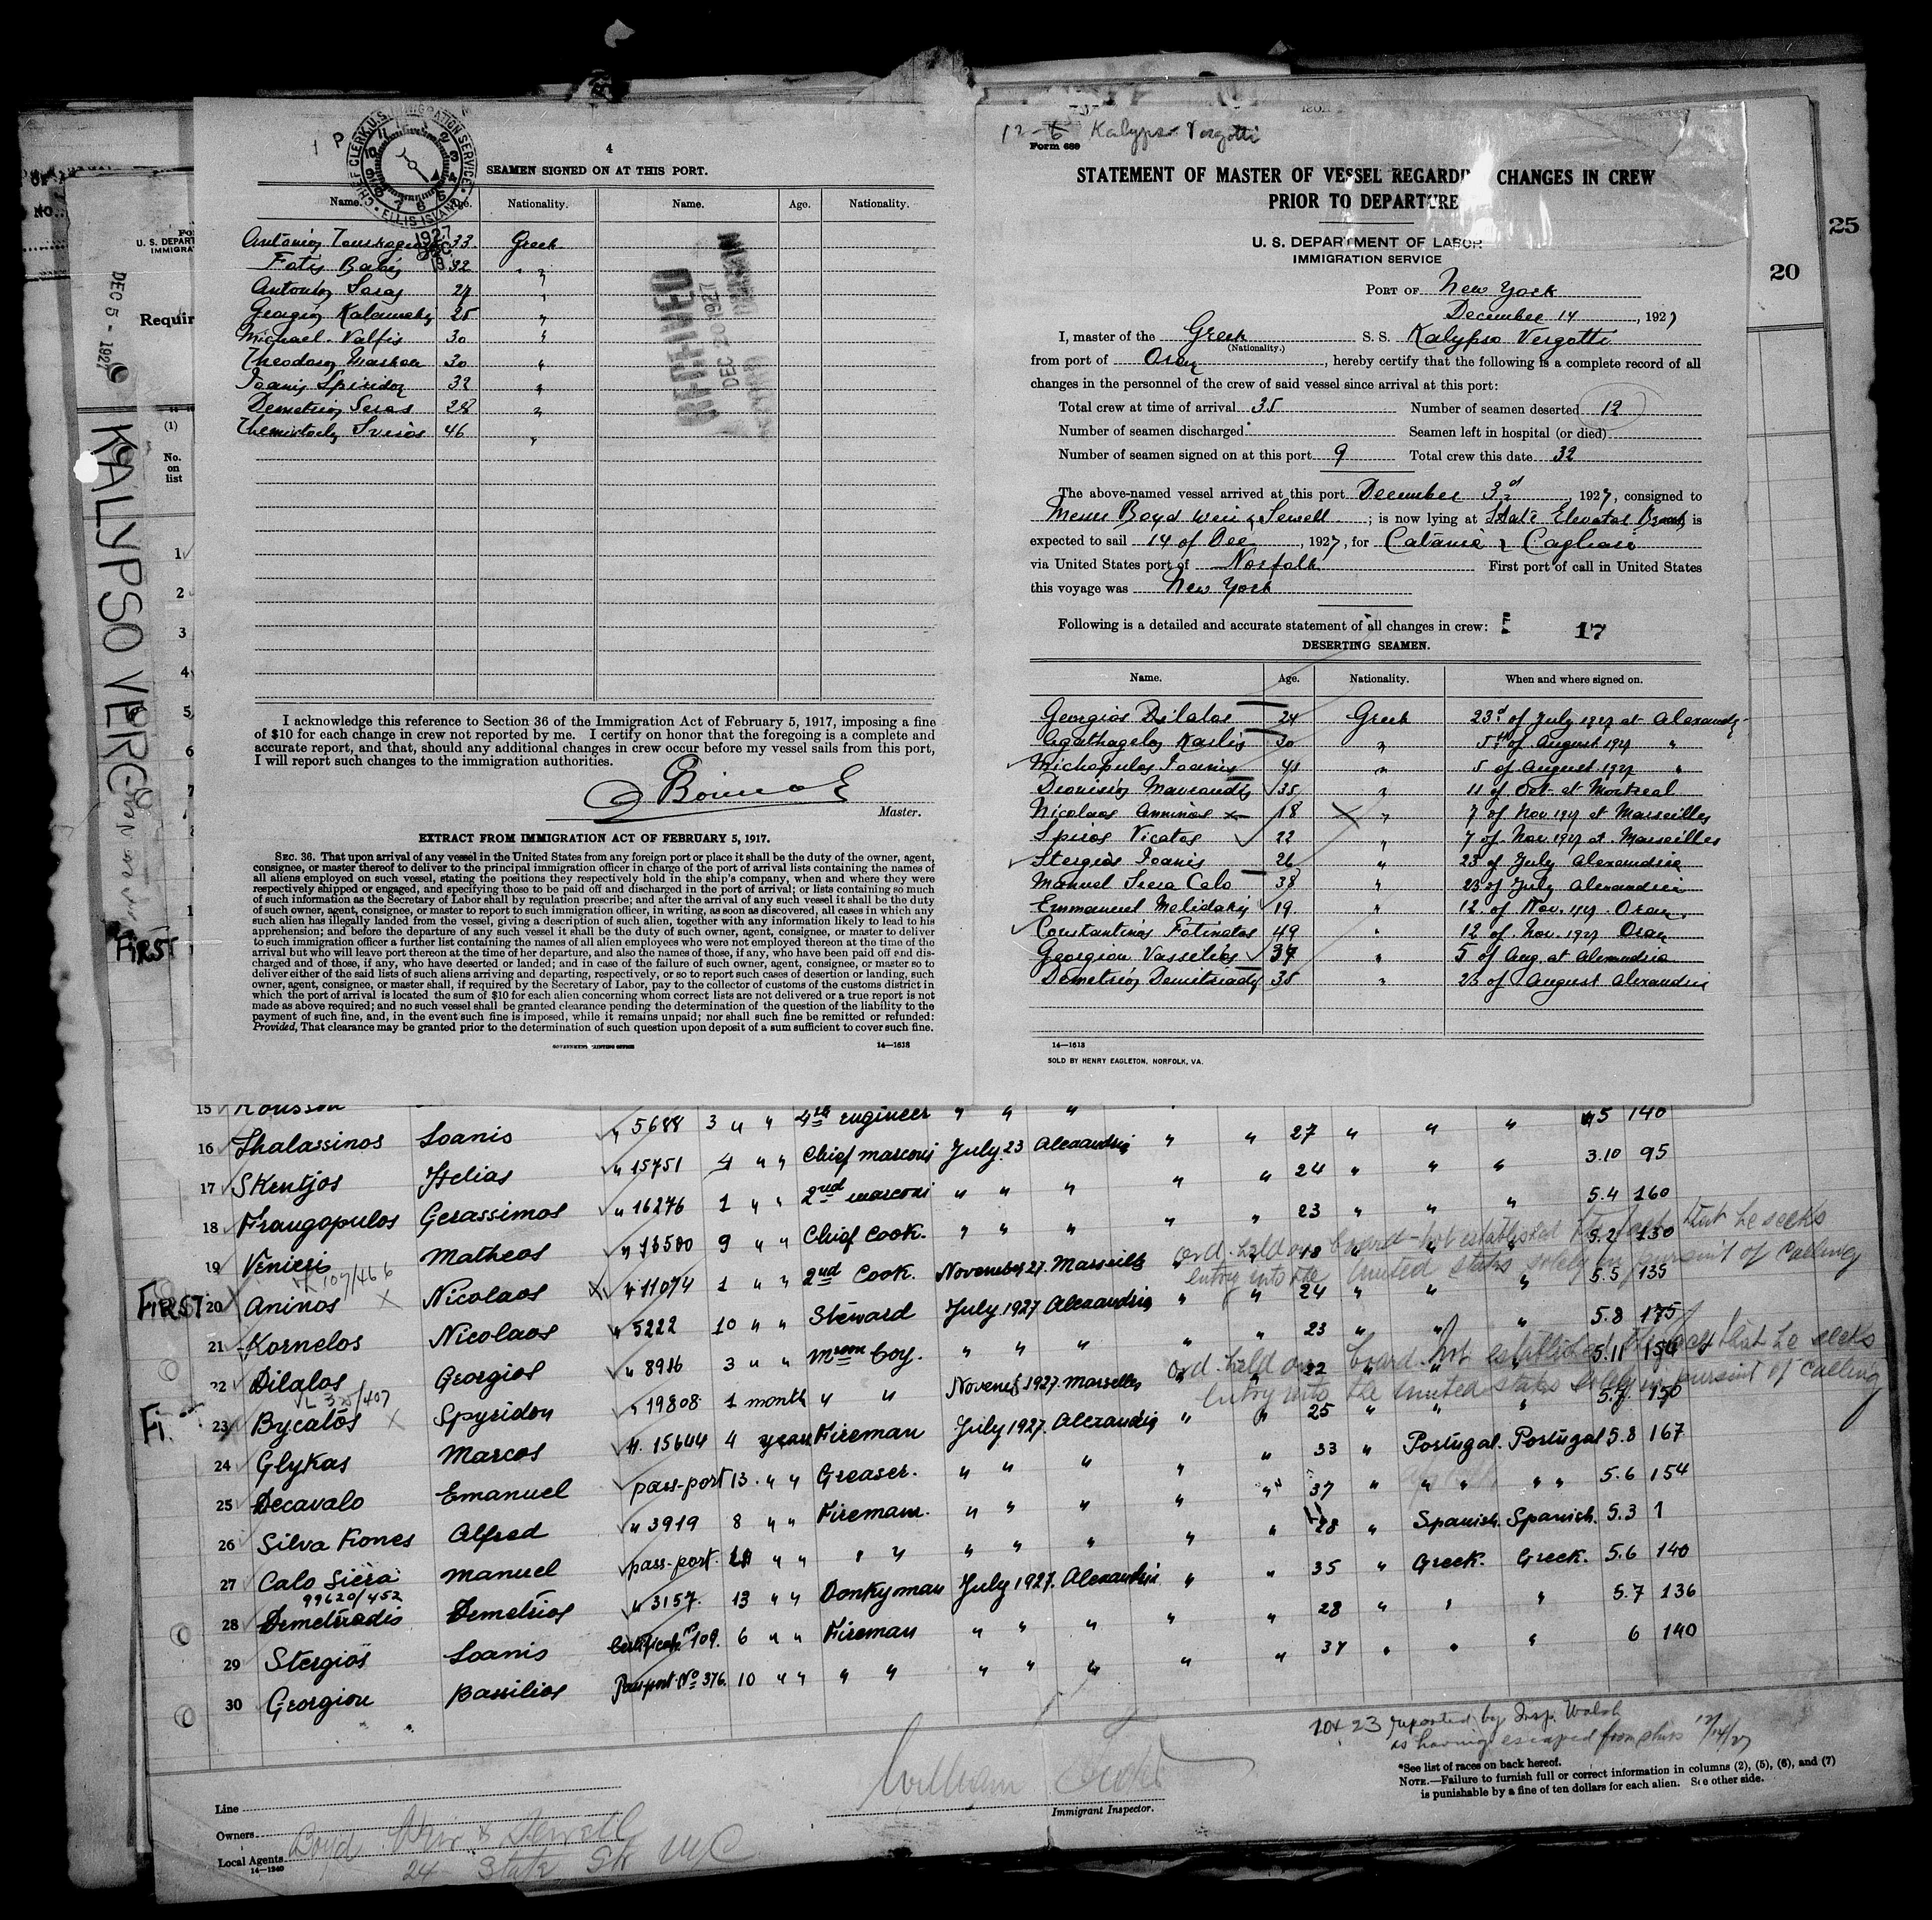 4
SEAMEN SIGNED ON AT THIS PORT.
CHIEF CLERK U.S. IMMIGRATION SERVICE
ELLIS ISLAND
1927
Name. Age. Nationality. Name. Age. Nationality.
Antonios 33 Greek
Fotis Babis 32 "
Antonios Saras 27 "
Georgios 25 "
Michael Valfis 30 "
Theodoros 30 "
Joanis Spiridon 32 "
Demetrios Seras 28 "
46 "
ARRIVED
DEC 20 1927
I acknowledge this reference to Section 36 of the Immigration Act of February 5, 1917, imposing a fine
of $10 for each change in crew not reported by me. I certify on honor that the foregoing is a complete and
accurate report, and that, should any additional changes in crew occur before my vessel sails from this port,
I will report such changes to the immigration authorities.
Master.
EXTRACT FROM IMMIGRATION ACT OF FEBRUARY 5, 1917.
SEC. 36. That upon arrival of any vessel in the United States from any foreign port or place it shall be the duty of the owner, agent,
consignee, or master thereof to deliver to the principal immigration officer in charge of the port of arrival lists containing the names of
all aliens employed on such vessel, stating the positions they respectively hold in the ship's company, when and where they were
respectively shipped or engaged, and specifying those to be paid off and discharged in the port of arrival; or lists containing so much
of such information as the Secretary of Labor shall by regulation prescribe; and after the arrival of any such vessel it shall be the duty
of such owner, agent, consignee, or master to report to such immigration officer, in writing, as soon as discovered, all cases in which any
such alien has illegally landed from the vessel, giving a description of such alien, together with any information likely to lead to his
apprehension; and before the departure of any such vessel it shall be the duty of such owner, agent, consignee, or master to deliver
to such immigration officer a further list containing the names of all alien employees who were not employed thereon at the time of the
arrival but who will leave port thereon at the time of her departure, and also the names of those, if any, who have been paid off and dis-
charged and of those, if any, who have deserted or landed; and in case of the failure of such owner, agent, consignee, or master so to
deliver either of the said lists of such aliens arriving and departing, respectively, or so to report such cases of desertion or landing, such
owner, agent, consignee, or master shall, if required by the Secretary of Labor, pay to the collector of customs of the customs district in
which the port of arrival is located the sum of $10 for each alien concerning whom correct lists are not delivered or a true report is not
made as above required; and no such vessel shall be granted clearance pending the determination of the question of the liability to the
payment of such fine, and, in the event such fine is imposed, while it remains unpaid; nor shall such fine be remitted or refunded:
Provided, That clearance may be granted prior to the determination of such question upon deposit of a sum sufficient to cover such fine.
GOVERNMENT PRINTING OFFICE
14—1618
12-6 Kalypso Vergotti
Form 689
STATEMENT OF MASTER OF VESSEL REGARDING CHANGES IN CREW
PRIOR TO DEPARTURE
U. S. DEPARTMENT OF LABOR
IMMIGRATION SERVICE
PORT OF New York
December 14, 1927
I, master of the Greek S. S. Kalypso Vergotti
(Nationality.)
from port of Oran, hereby certify that the following is a complete record of all
changes in the personnel of the crew of said vessel since arrival at this port:
Total crew at time of arrival 35 Number of seamen deserted 12
Number of seamen discharged Seamen left in hospital (or died)
Number of seamen signed on at this port 9 Total crew this date 32
The above-named vessel arrived at this port December 3d, 1927, consigned to
Messrs Boyd Weir & Sewell; is now lying at State Elevator is
expected to sail 14 of Dec, 1927, for Catania & Cagliari
via United States port of Norfolk First port of call in United States
this voyage was New York
Following is a detailed and accurate statement of all changes in crew: 17
DESERTING SEAMEN.
Name. Age. Nationality. When and where signed on.
Georgios Dilalos 24 Greek 23d of July 1927 at
Agathagelos Karlis 30 " 5th of August 1927 "
Michopulos Joanis 41 " 5 of August 1927 "
Dionisios 35 " 11 of Oct. at Montreal
Nicolaos Anninos x 18 X " 7 of Nov 1927 at Marseilles
Spiros Vicatos 22 " 7 of Nov 1927 at Marseilles
Stergios Joanis 26 " 23 of July Alexandria
Manuel Siera Calo 38 " 23 of July Alexandria
Emmanuel Melidakis 19 " 12 of Nov. 1927 Oran
Constantinos Fotinatos 49 " 12 of Nov. 1927 Oran
Georgiou Vassilios 37 " 5 of Aug. at Alexandria
Demetrios Demitriadis 35 " 23 of August Alexandria
14—1613
SOLD BY HENRY EAGLETON, NORFOLK, VA.
25
20
DEC 5 - 1927
U. S. DEPART
IMMIGRA
Requir
(1)
No.
on
list
KALYPSO VERG
FIRST
1
2
3
4
5
6
7
15 5688 3 " " 4th engineer " " " 5 140
16 Thalassinos Joanis " 15751 4 " " Chief marconi July 23 Alexandria " " 27 " " " 3.10 95
17 Skentjos Helias " 16276 1 " " 2nd marconi " " " " " 24 " " " 5.4 160
18 Frangopulos Gerassimos 9 " " Chief Cook. " " " " " 23 " " " 5.2 130
ord. held on board - not established the fact that he seeks
entry into the United States solely in pursuit of calling
19 Venieris Matheos
107/466
FIRST 20 X Aninos X Nicolaos X " 11074 1 " " 2nd Cook. November 27. Marseille 18 5.5 135
21 Kornelos Nicolaos " 5222 10 " " Steward July 1927 Alexandria " " 24 " " " 5.8 175
22 Dilalos Georgios " 8916 3 " " mroom boy. " " " " " 23 5.11 154
ord. held on board. Not established the fact that he seeks
entry into the United States solely in pursuit of calling
23 Bycatos X Spyridon " 19808 1 month " " 1927. Marseilles 22 5.7 150
24 Glykas Marcos 15644 4 years Fireman July 1927. Alexandria " " 25
25 Decavalo Emanuel pass-port 13 " " Greaser. " " " " " 33 " Portugal. Portugal 5.8 167
26 Silva Fiones Alfred " 3919 8 " " Fireman. " " " " " 37 " " " " " 5.6 154
27 Calo Siera Manuel pass-port. " " " " " " " " " 28 " Spanish. Spanish. 5.3 1
99620/452
28 Demetriadis Demetrios " 3157. 13 " " Donkyman July 1927. Alexandria " " 35 " Greek. Greek. 5.6 140
29 Stergios Joanis Certificate no 109. 6 " " Fireman " " " " " 28 " " " 5.7 136
30 Georgiou Bassilios Passport No 376. 10 " " " " " " " " " 37 " " " 6 140
20 & 23 reported by Insp. Walsh
as having escaped from ship 12/14/27
*See list of races on back hereof.
NOTE.—Failure to furnish full or correct information in columns (2), (5), (6), and (7)
is punishable by a fine of ten dollars for each alien. See other side.
William
Immigrant Inspector.
Line
Owners
Boyd Weir & Sewell
Local Agents 24 State St NYC
14—1240